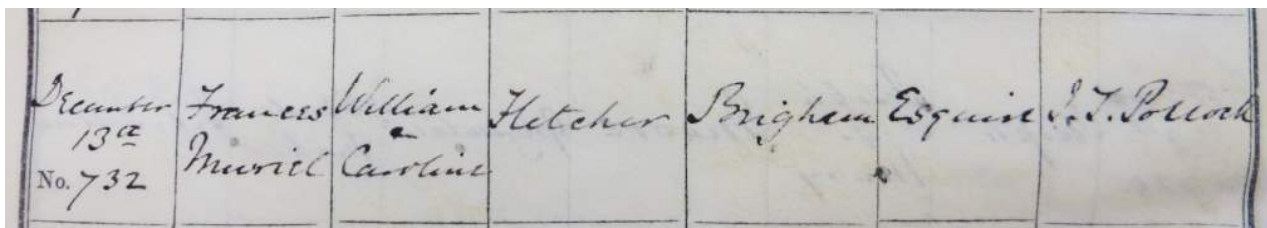 December
13th
No. 732
Frances
Muriel
William
&
Caroline
Fletcher
Brigham
Esquire
J. T. Pollock